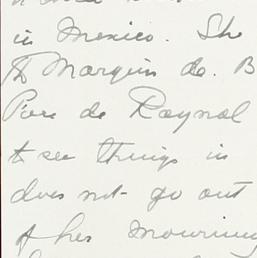 in Mexico. She
Marquis de. B
de Raynal
to see things in
does not go out
of her mourning